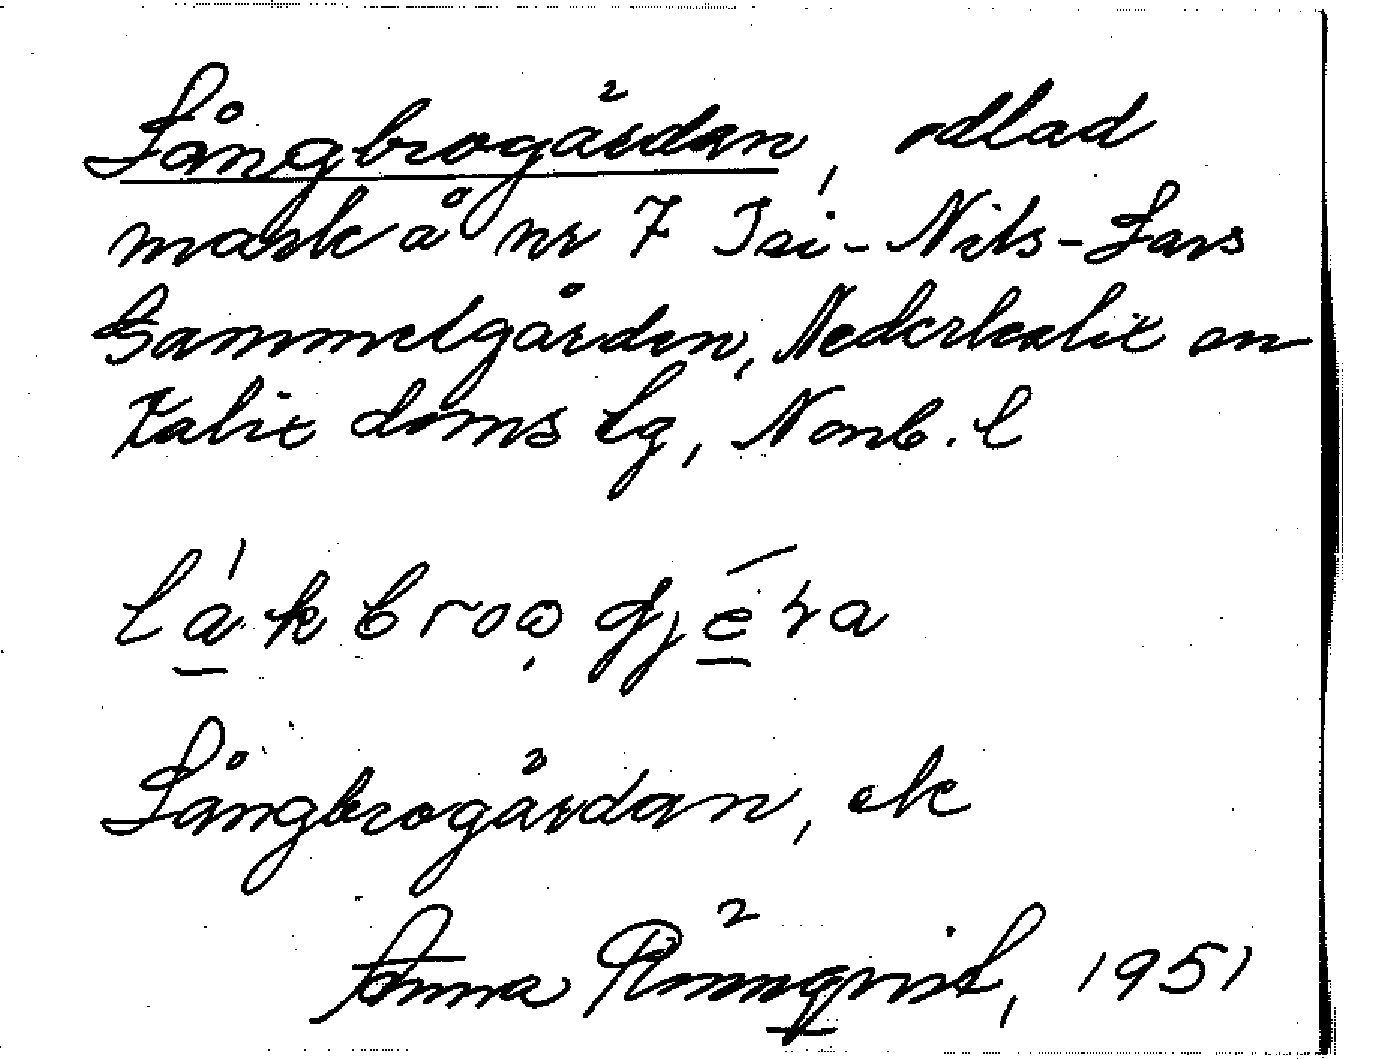 Långbrogårdan, odlad
mark å nr 7 Isi-Nils-Lars
Gammelgården, Nederkalix sn
Kalix doms lg, Norrb. l
låkbroogjéra
Långbrogårdan, ek
Anna Rönnqvist, 1951